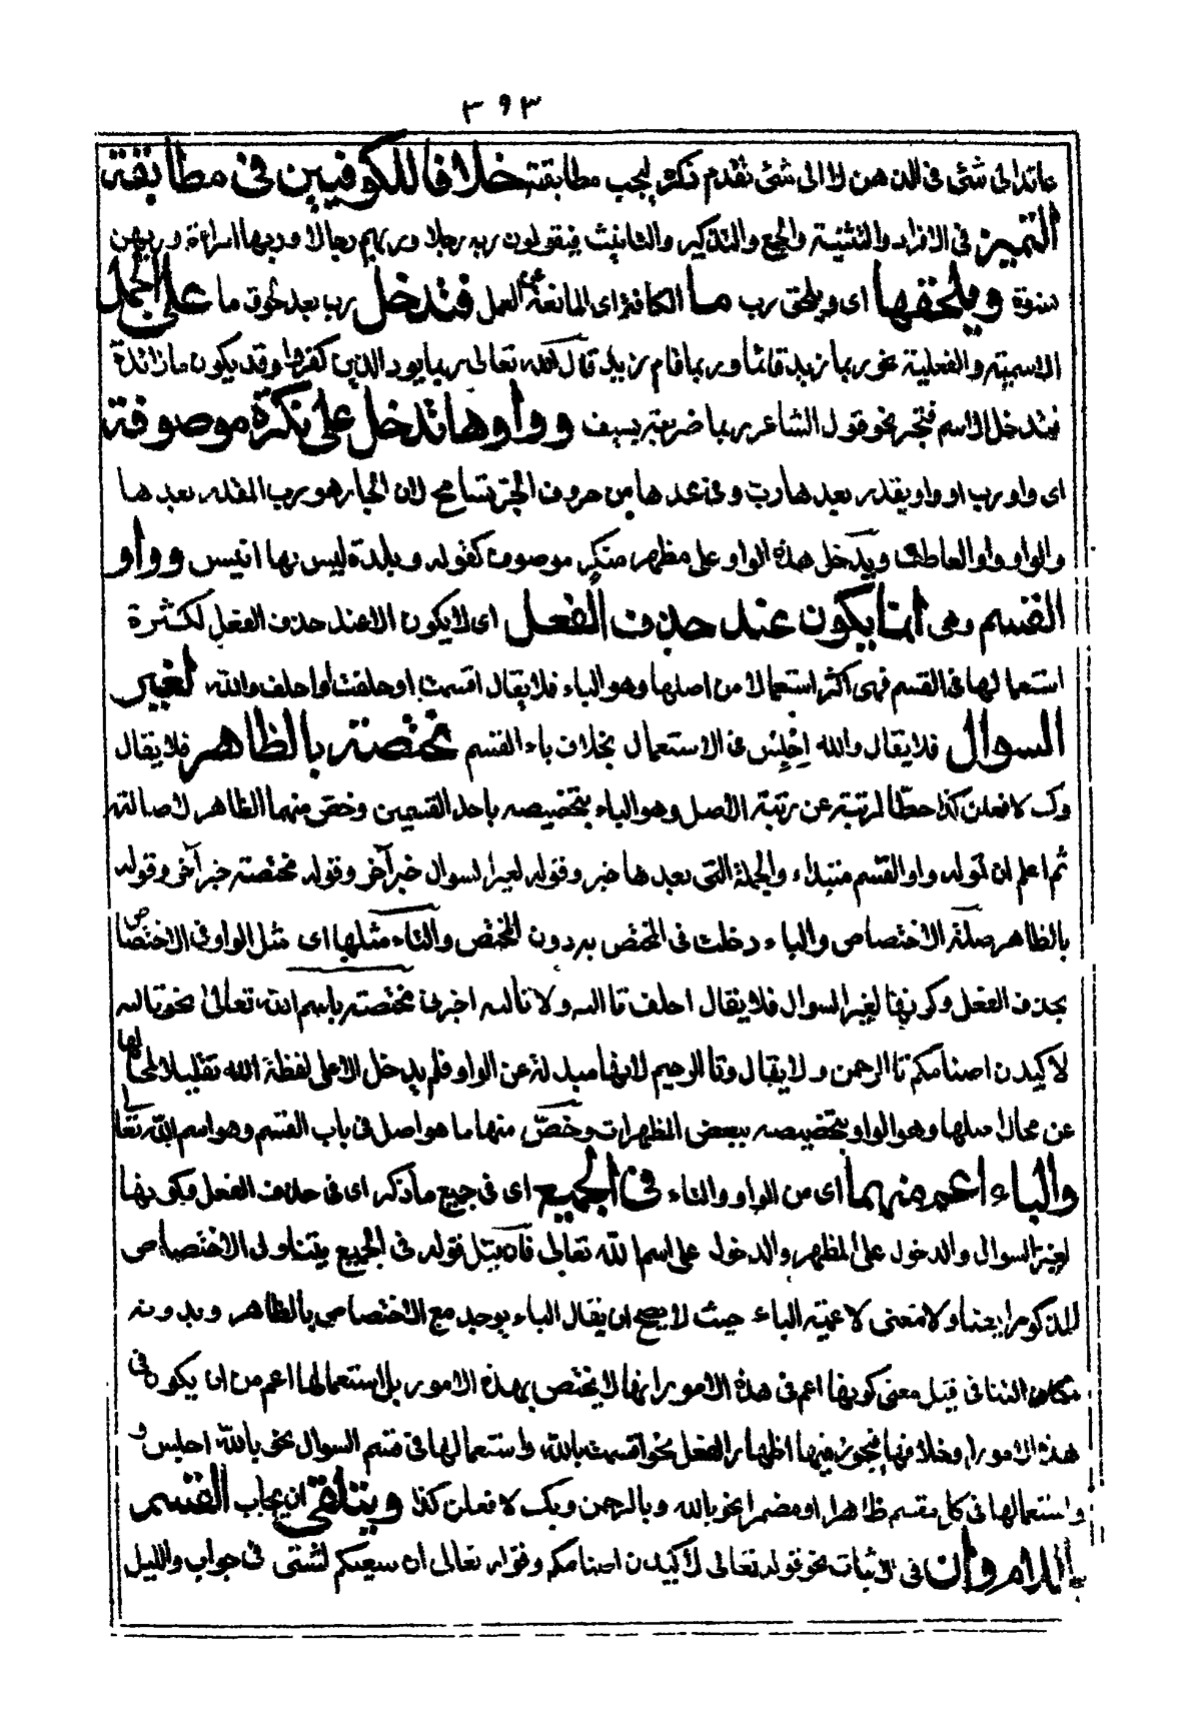 ٣٩٣
عائد الى شئ فى الذهن لا الى شئ تقدم ذكره ليجب مطابقته خلافا للكوفيين فى مطابقة
التمييز فى الافراد والتثنية والجمع والتذكير والتانيث فيقولون ربه رجلا وربهم رجالا وربها امراءة وربهن
نسوة ويلحقها اى ويلحق رب ما الكافة اى المانعة عن العمل فتدخل رب بعد لحوق ما على الجمل
الاسمية والفعلية نحو ربما زيد قائما وربما قام زيد قال الله تعالى ربما يود الذين كفروا وقد يكون ما زائدة
فتدخل الاسم فتجر نحو قول الشاعر ربما ضربة بسيف وواوها تدخل على نكرة موصوفة
اى واو رب او واو يقدر بعدها رب وفى عدها من حروف الجر تسامح لان الجار هو رب المقدر بعدها
والواو واو العاطف ويدخل هذه الواو على مظهر منكر موصوف كقوله وبلدة ليس بها انيس وواو
القسم وهى انما يكون عند حذف الفعل اى لا يكون الا عند حذف الفعل لكثرة
استعمالها فى القسم فهى اكثر استعمالا من اصلها وهو الباء فلا يقال اقسمت او حلفت او احلف والله لغير
السوال فلا يقال والله اجلس فى الاستعمال بخلاف باء القسم مختصة بالظاهر فلا يقال
وك لافعلن كذا حطا لمرتبة عن رتبة الاصل وهو الباء بتخصيصه باحد القسمين وخص منهما الظاهر لاصالته
ثم اعلم ان قوله واو القسم مبتداء والجملة التى بعدها خبر وقوله لغير السوال خبر آخر وقوله مختصة خبر آخر وقوله
بالظاهر صلة الاختصاص والباء دخلت فى المختص به دون المختص والتاء مثلها اى مثل الواو فى الاختصاص
بحذف الفعل وكونها لغير السوال فلا يقال احلف تالله ولا تالله اخبرنى مختصة باسم الله تعالى نحو تالله
لاكيدن اصنامكم تا الرحمن ولا يقال وتا الرحيم لانها مبدلة عن الواو فلم يدخل الا على لفظة الله تقليلا لها
عن مجال اصلها وهو الواو بتخصيصه ببعض المظهرات وخص منها ما هو اصل فى باب القسم وهو اسم الله تعا
والباء اعم منهما اى من الواو والتاء فى الجميع اى فى جميع ما ذكر اى فى حذف الفعل وكونها
لغير السوال والدخول على المظهر والدخول على اسم الله تعالى فان قيل قوله فى الجميع يتناول الاختصاص
المذكور ايضا ولا معنى لاعمية الباء حيث لا يصح ان يقال الباء يوجد مع الاختصاص بالظاهر وبدونه
لمكان التنافى قيل معنى كونها اعم فى هذه الامور انها لا يختص بهذه الامور بل استعمالها اعم من ان يكون فى
هذه الامور او خلافها فيجوز فيها اظهار الفعل نحو اقسمت بالله واستعمالها فى قسم السوال نحو بالله اجلس و
واستعمالها فى كل مقسم ظاهرا او مضمرا نحو بالله وبالرحمن وبك لافعلن كذا ويتلقى اى يجاب القسم
باللام وان فى الاثبات نحو قوله تعالى لاكيدن اصنامكم وقوله تعالى ان سعيكم لشتى فى جواب والليل